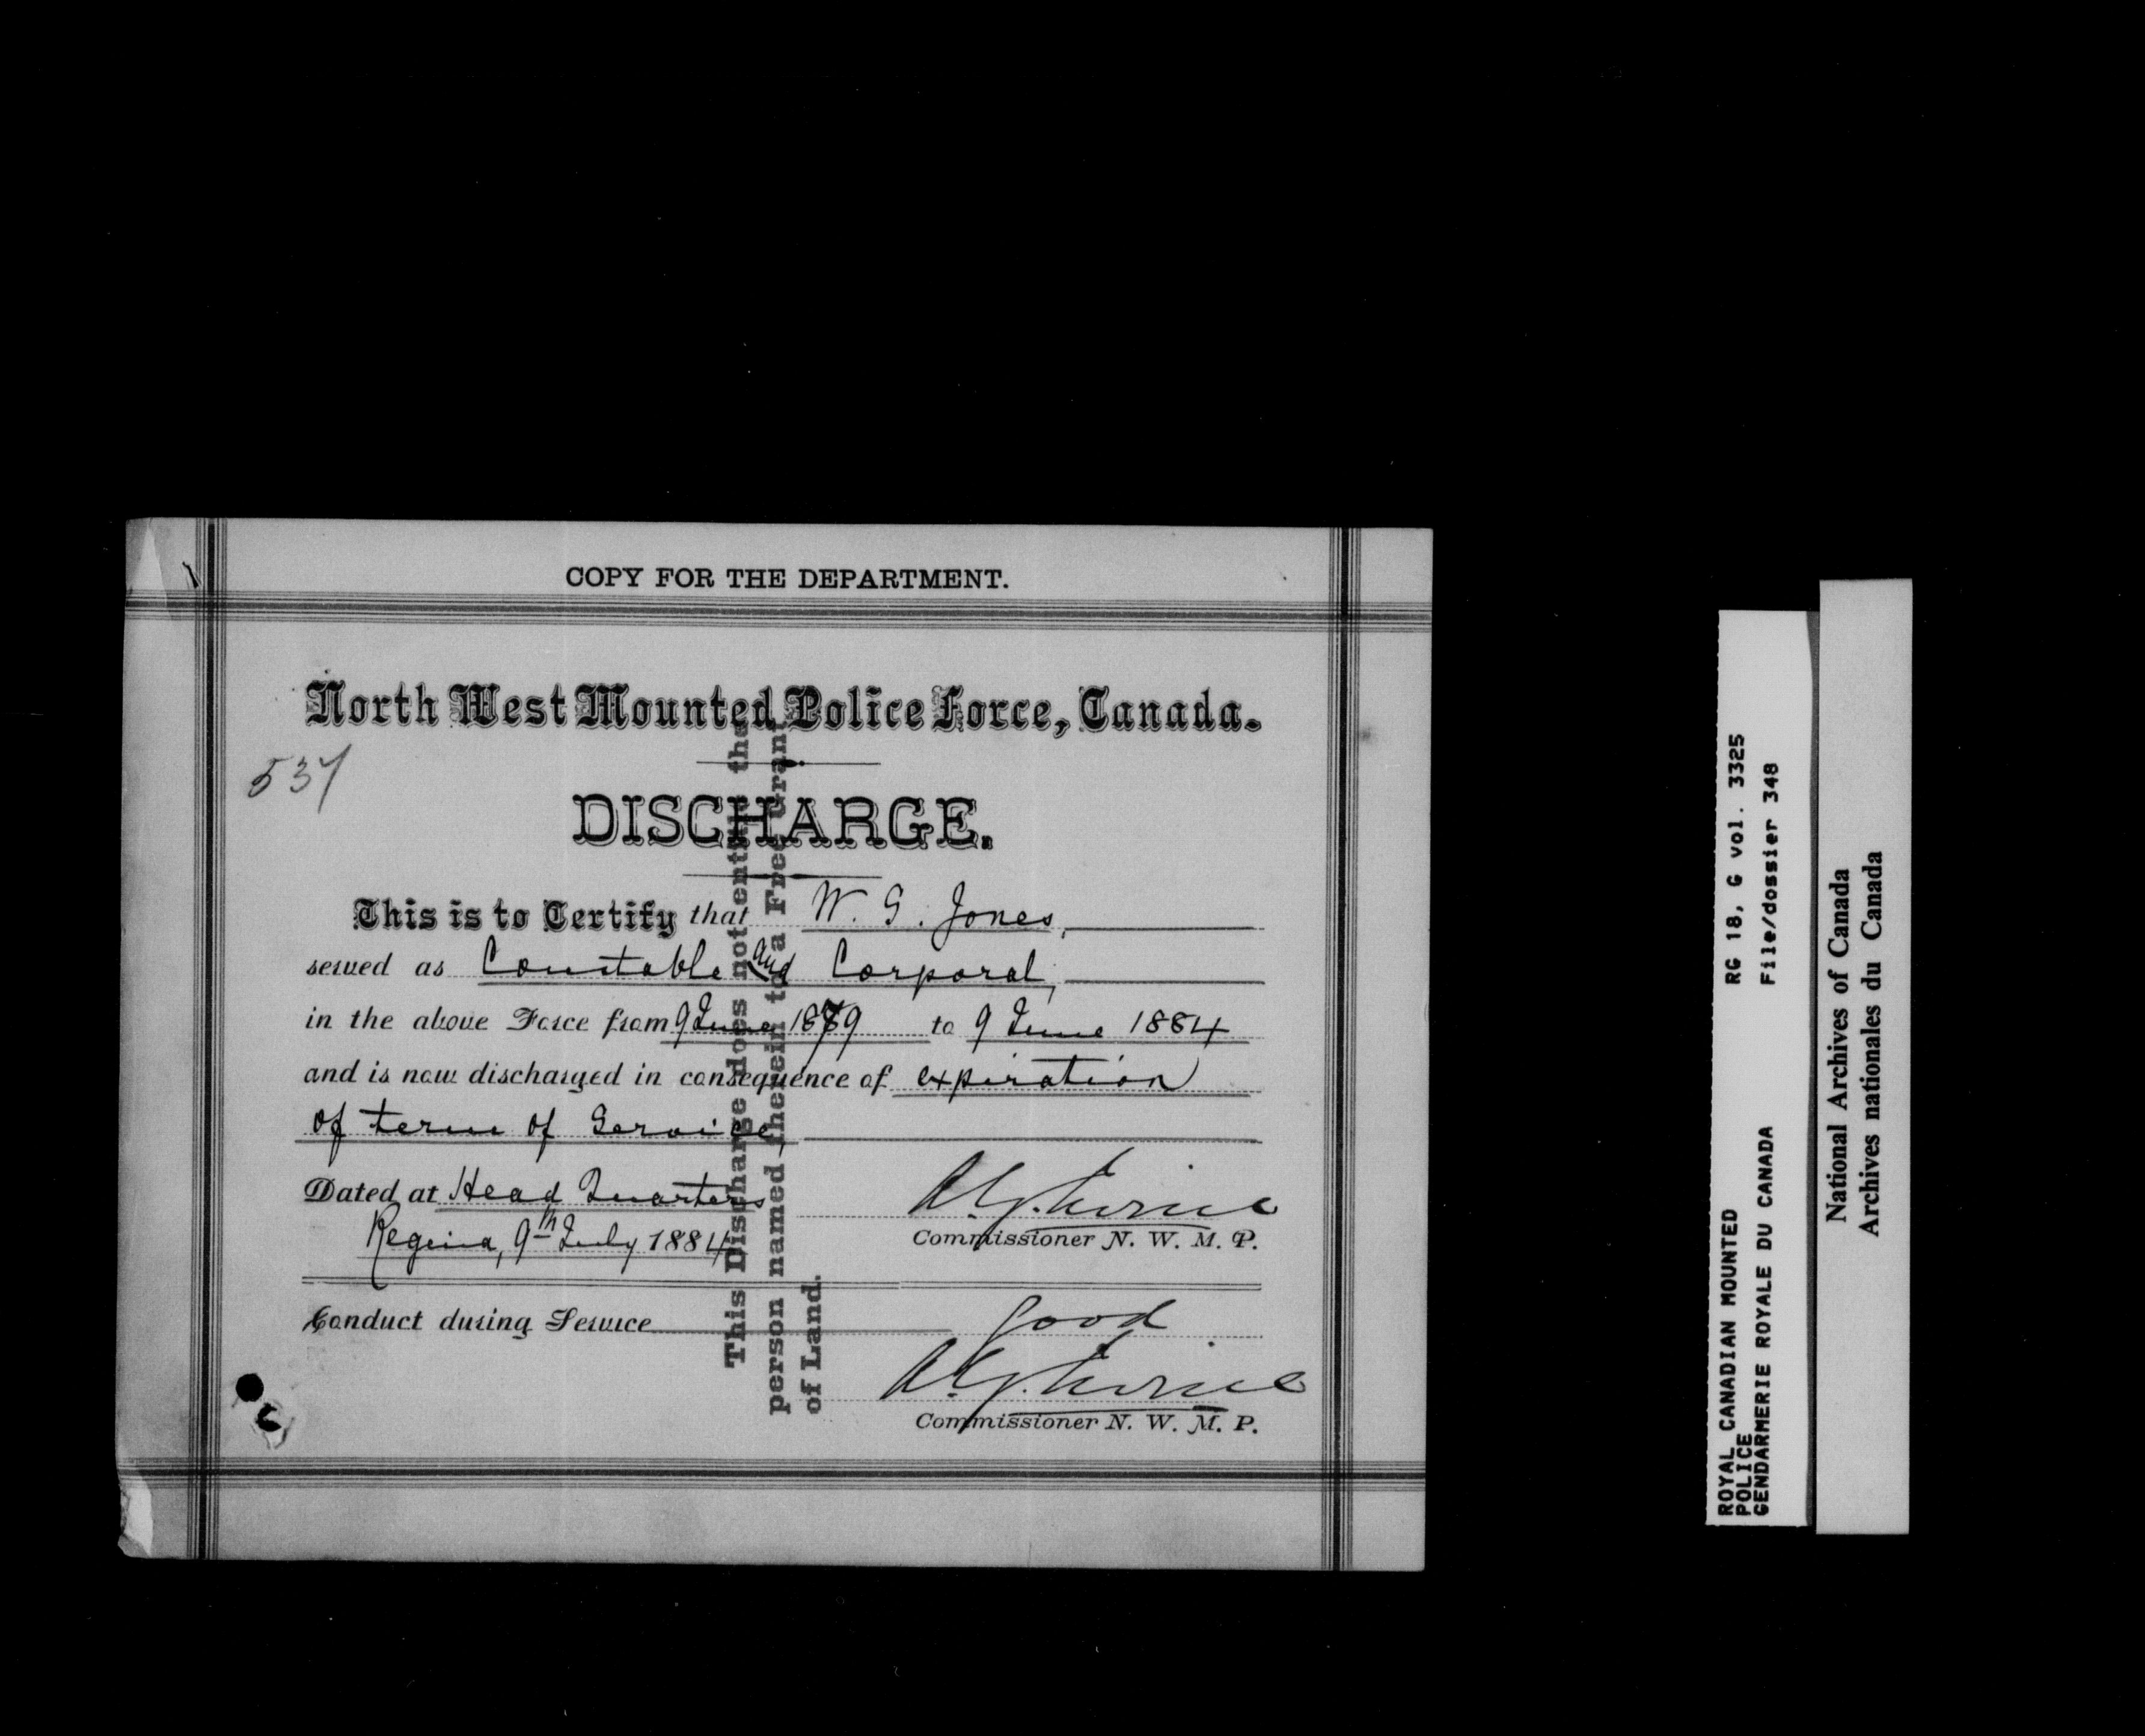 COPY FOR THE DEPARTMENT.
North West Mounted Police Force, Canada.
537
DISCHARGE.
This is to Certify that W. G. Jones,
served as Constable and Corporal,
in the above Force from 9 June 1879 to 9 June 1884
and is now discharged in consequence of expiration
of term of Service,
Dated at Head Quarters
Regina, 9th July 1884
Commissioner N. W. M. P.
Conduct during Service good
Commissioner N. W. M. P.
This Discharge does not entitle the
person named therein to a Free Grant
of Land.
ROYAL CANADIAN MOUNTED
POLICE
GENDARMERIE ROYALE DU CANADA
RG 18, G vol. 3325
File/dossier 348
National Archives of Canada
Archives nationales du Canada